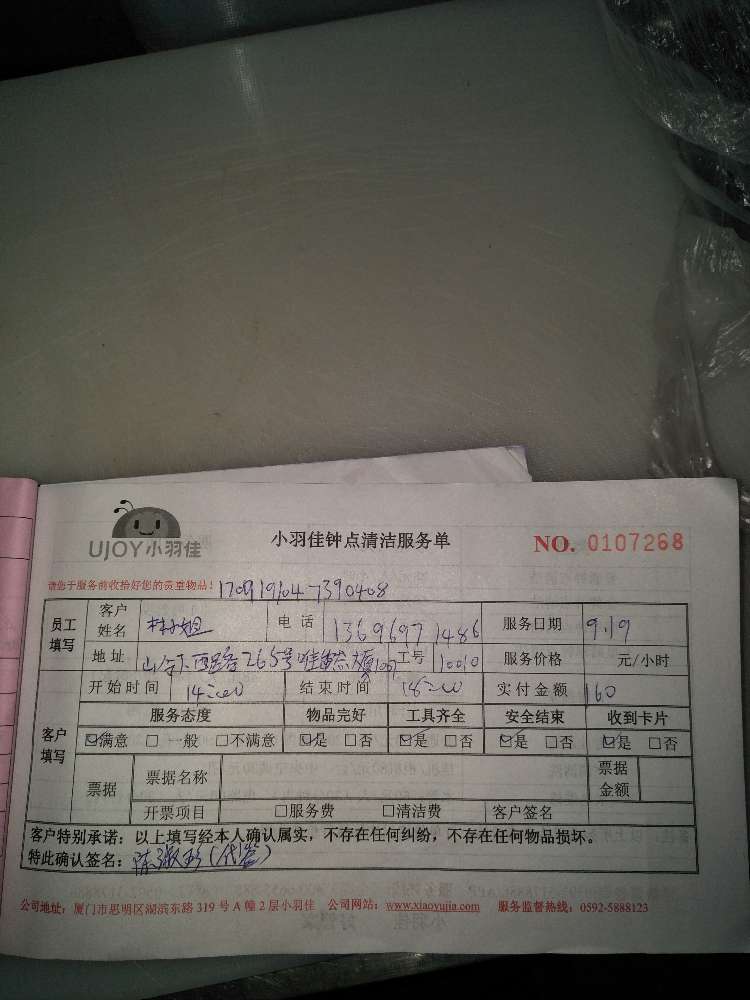 UJOY小羽佳
小羽佳钟点清洁服务单
NO. 0107268
请您于服务前收拾好您的贵重物品！
员工填写 客户姓名 林小姐 电话 13696971486 服务日期 9.19
地址 265号 工号 10010 服务价格 元/小时
开始时间 14:00 结束时间 18:00 实付金额 160
客户填写 服务态度 物品完好 工具齐全 安全结束 收到卡片
☑满意 □一般 □不满意 ☑是 □否 ☑是 □否 ☑是 □否 ☑是 □否
票据 票据名称 票据金额
开票项目 □服务费 □清洁费 客户签名
客户特别承诺：以上填写经本人确认属实，不存在任何纠纷，不存在任何物品损坏。
特此确认签名：陈 (代签)
公司地址：厦门市思明区湖滨东路 319 号 A 幢 2 层小羽佳 公司网站：www.xiaoyujia.com 服务监督热线：0592-5888123